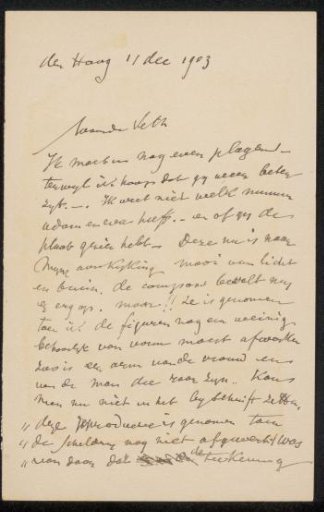 den Haag 11 dec 1903
Waarde Veth
Ik moet u nog even plagen –
terwijl ik hoop dat gij weer beter
zijt. –. Ik weet niet welk nummer
adam en eva heeft. – en of gij de
plaat gezien hebt – Deze nu is naar
mijne mooi van licht
en bruin. de compositie bevalt mij
erg op. maar!! ze is genomen
toen ik de figuren nog een weinig
behoorlijk van vorm moest afwerken
zoo is een arm van de vrouw en
van de man die raar zijn. Kan
men nu niet in het bijschrift zetten.
„ deze reproductie is genomen toen
„ de schilderij nog niet afgewerkt was
„ van daar dat de teekening